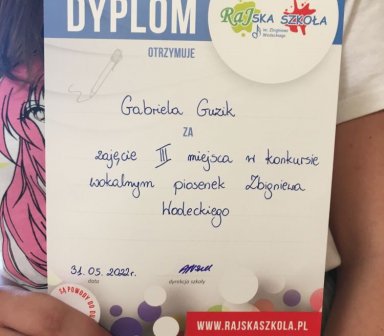 DYPLOM
RAJSKA SZKOŁA
im. Zbigniewa
Wodeckiego
OTRZYMUJE
Gabriela Guzik
ZA
zajęcie III miejsca w konkursie
wokalnym piosenek Zbigniewa
Wodeckiego
31.05.2022r.
data
dyrekcja szkoły
SĄ POWODY DO
WWW.RAJSKASZKOLA.PL